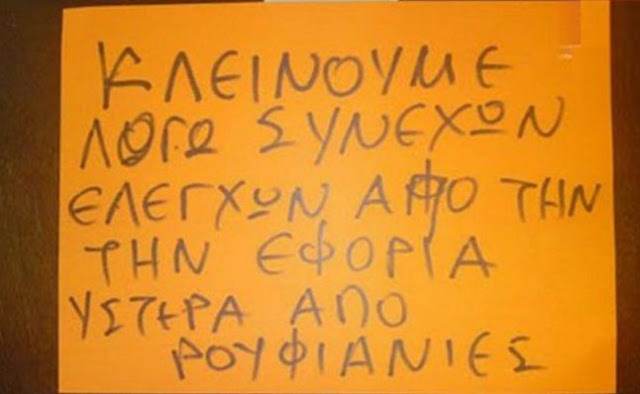 ΚΛΕΙΝΟΥΜΕ
ΛΟΓΩ ΣΥΝΕΧΩΝ
ΕΛΕΓΧΩΝ ΑΠΟ ΤΗΝ
ΤΗΝ ΕΦΟΡΙΑ
ΥΣΤΕΡΑ ΑΠΟ
ΡΟΥΦΙΑΝΙΕΣ